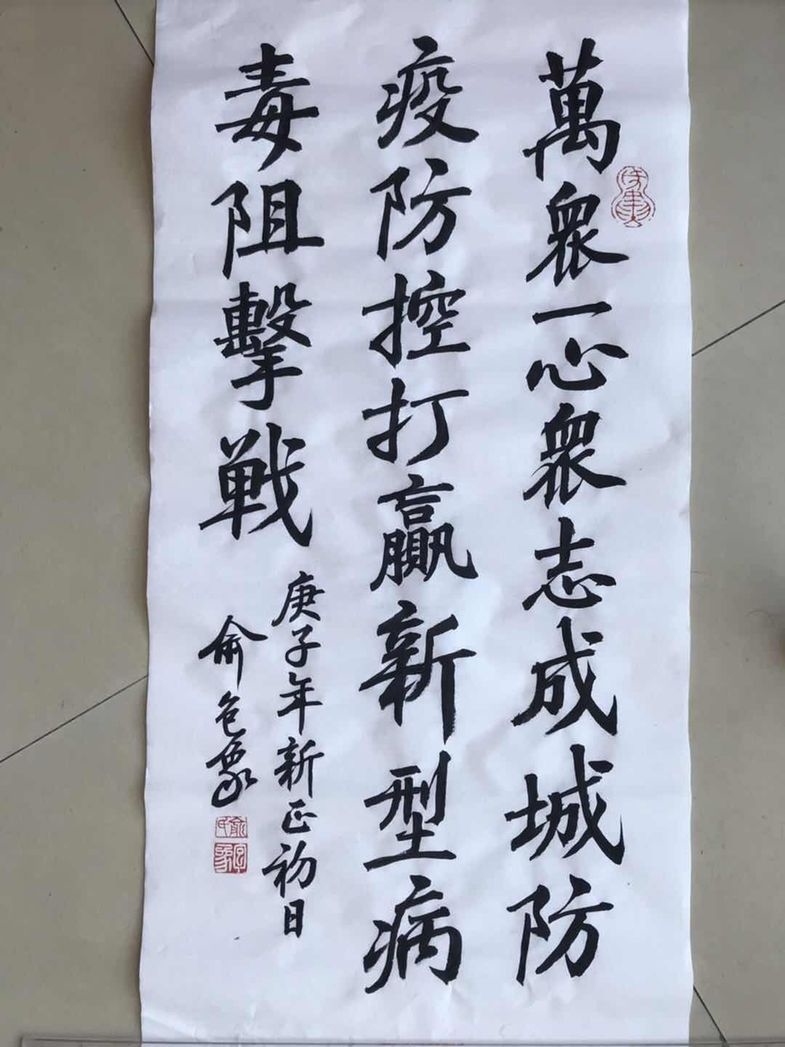 萬眾一心眾志成城防
疫防控打贏新型病
毒阻擊戰
庚子年新正初日
俞包象